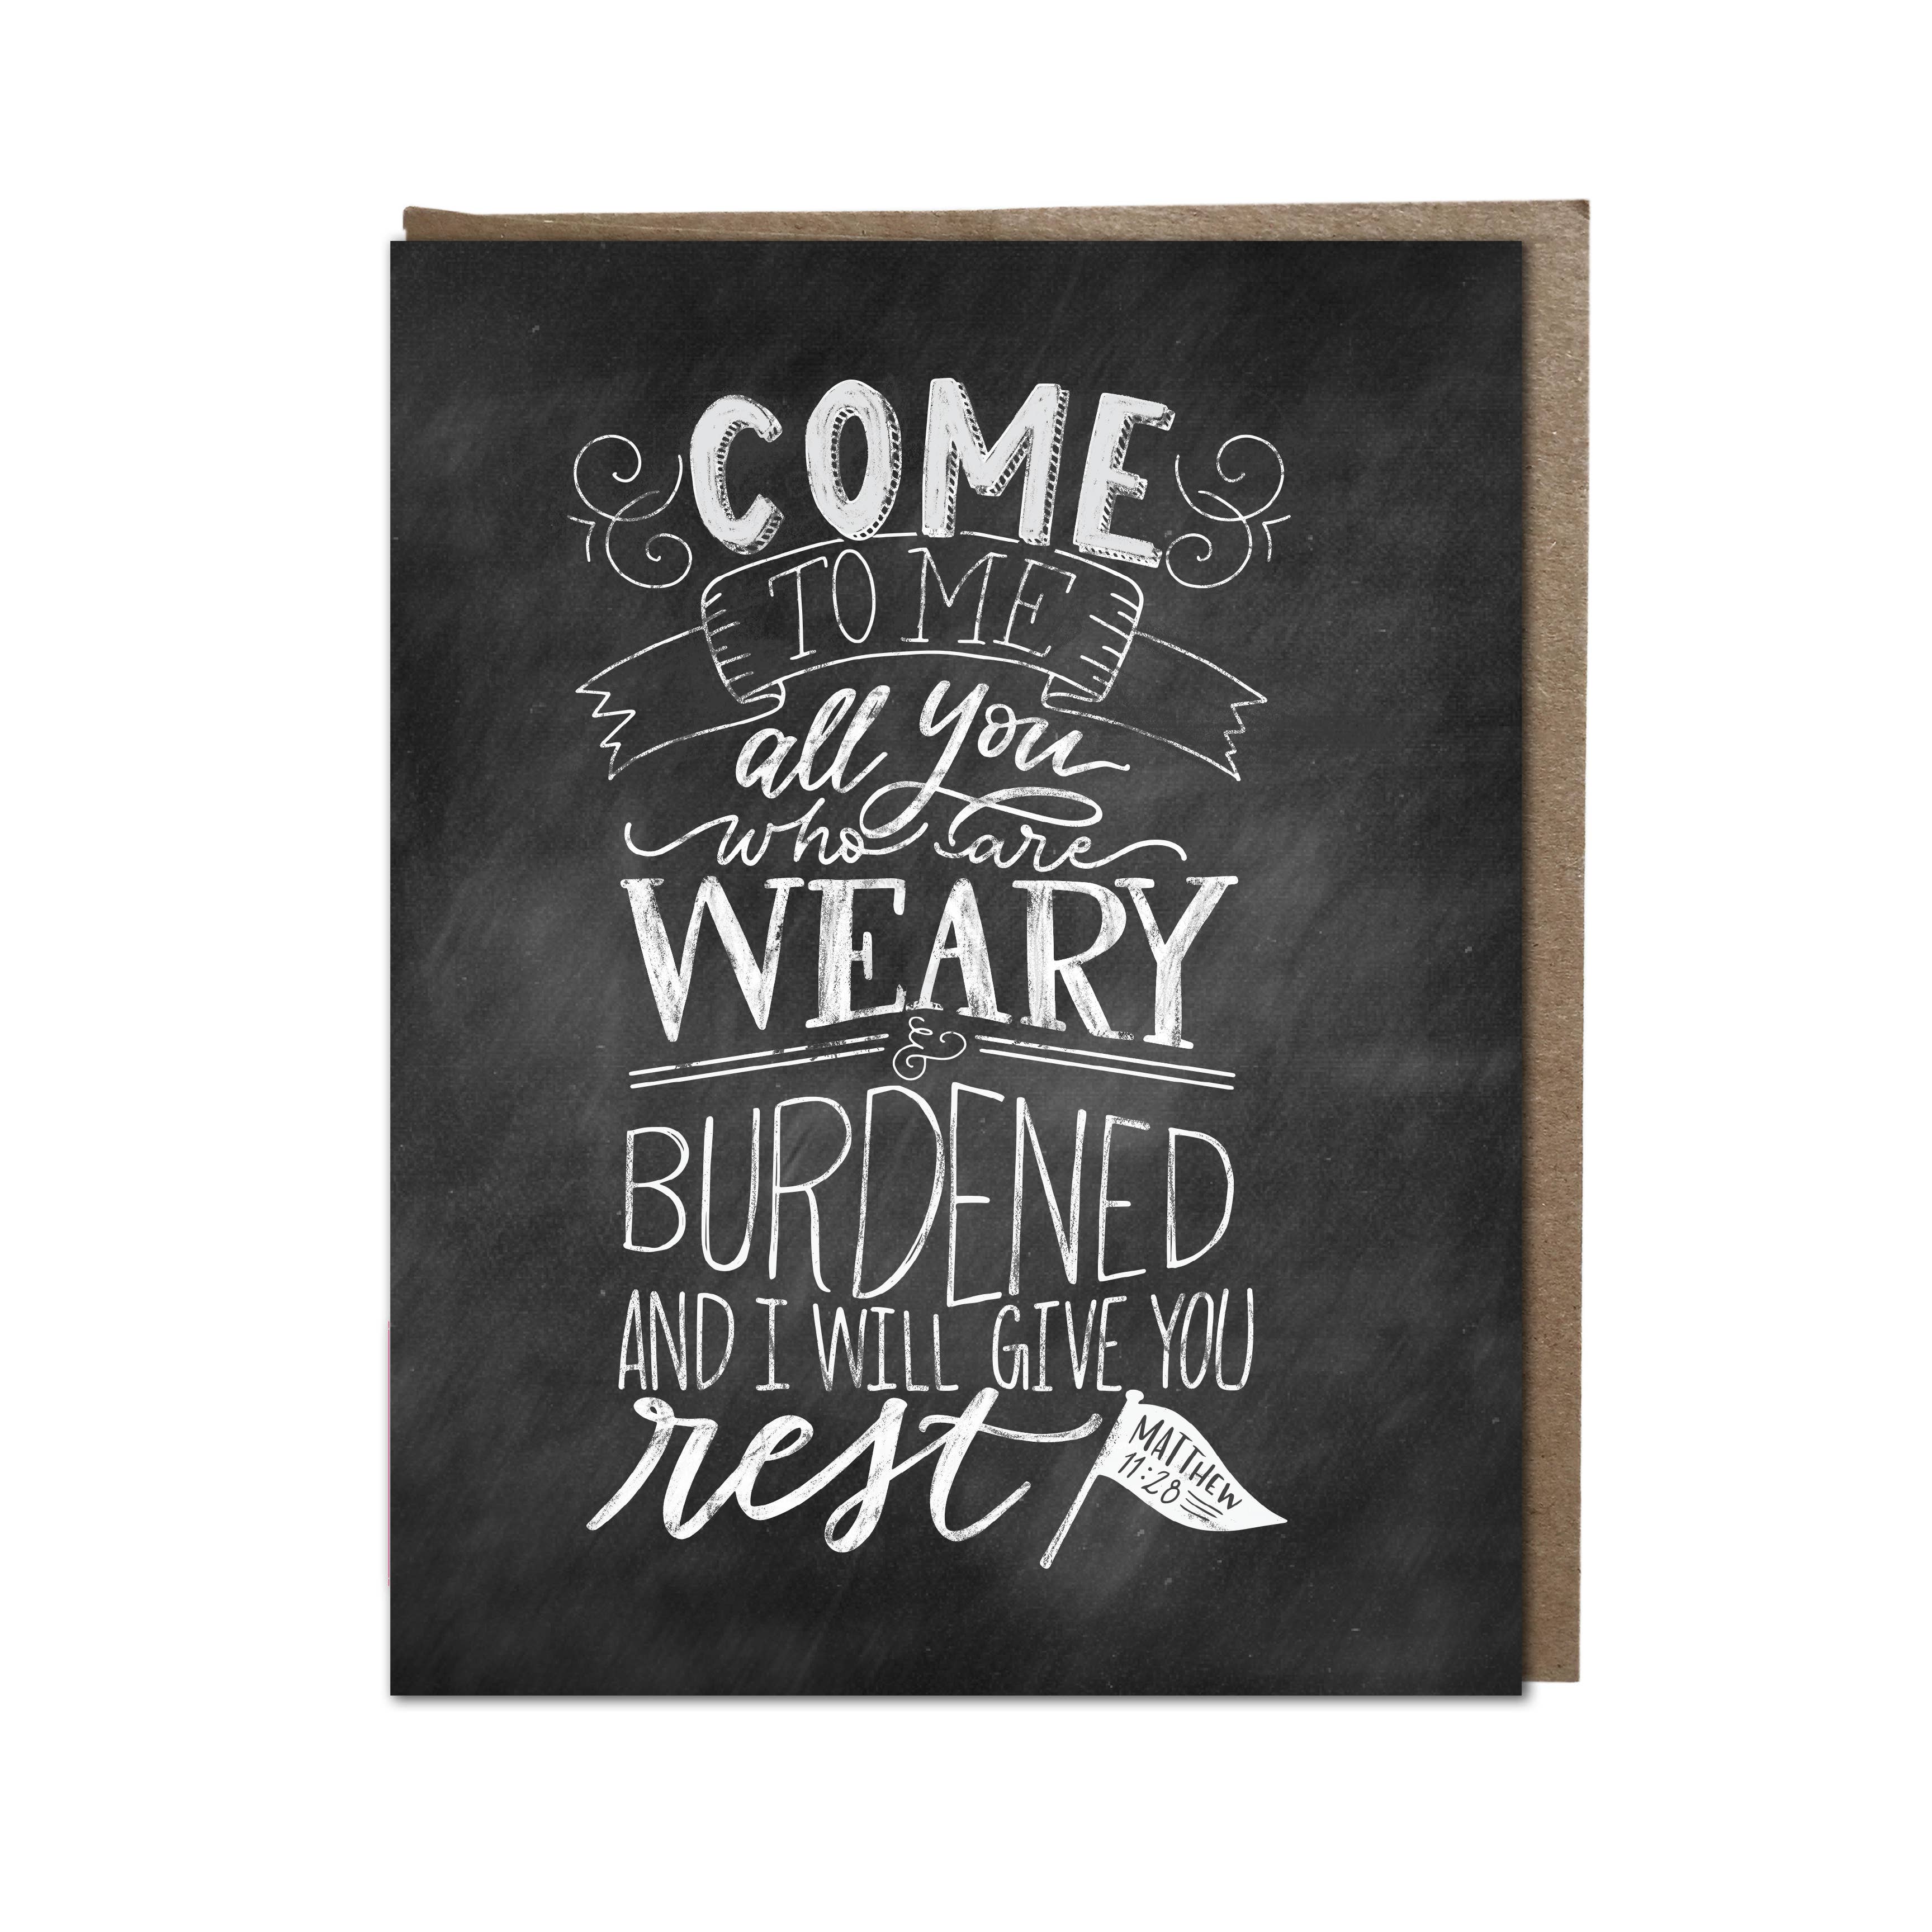 COME
TO ME
all you
who are
WEARY
&
BURDENED
AND I WILL GIVE YOU
rest
MATTHEW
11:28